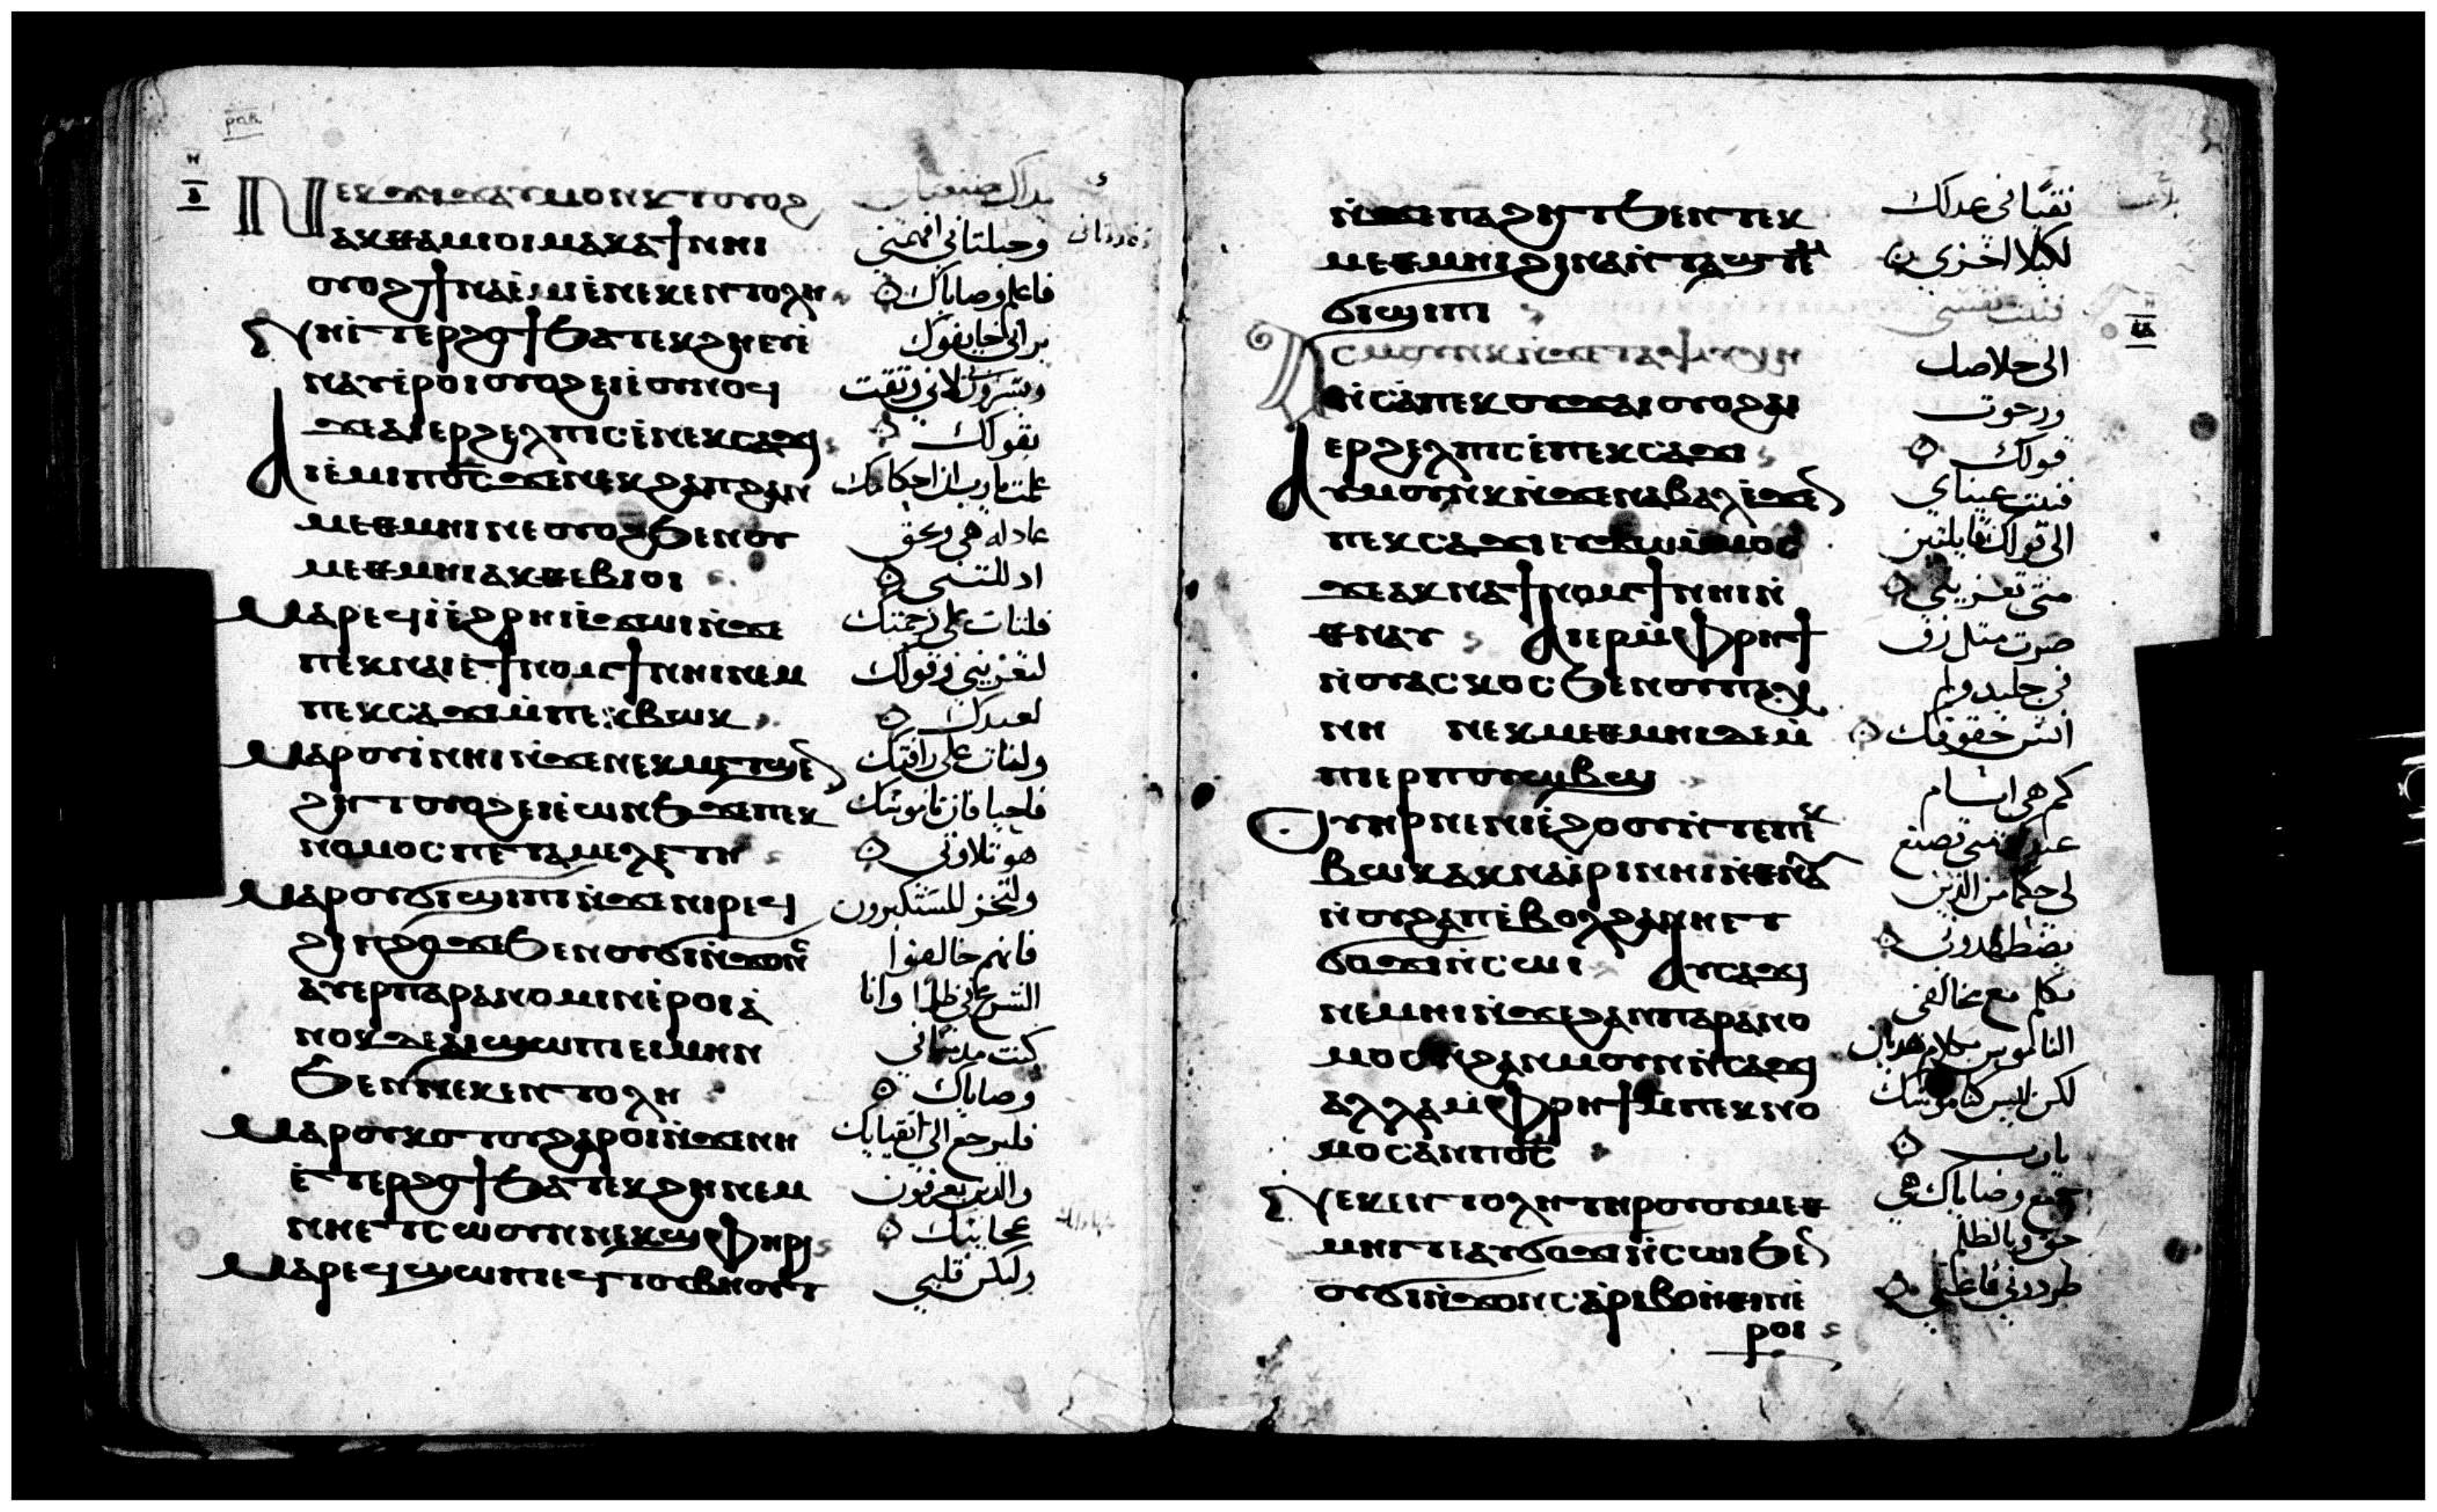 ⲣⲟⲃ
ⲏ
ⲑ
ⲛⲉⲕϫⲓϫ ⲁⲩⲙⲟⲛⲕⲧ ⲟⲩⲟϩ
ⲁⲕⲑⲁⲙⲓⲟⲓ ⲙⲁⲕⲁϯ ⲛⲏⲓ
ⲟⲩⲟϩ ϯⲛⲁⲉ̀ⲙⲓ ⲉ̀ⲛⲉⲕⲉⲛⲧⲟⲗⲏ
ⲛⲏⲉⲧⲉⲣϩⲟϯ ϧⲁⲧⲉⲕϩⲏ ⲉⲩⲉ̀
ⲛⲁⲩ ⲉ̀ⲣⲟⲓ ⲟⲩⲟϩ ⲉⲩⲉ̀ⲟⲩⲛⲟϥ
ϫⲉ ⲁⲓⲉⲣϩⲉⲗⲡⲓⲥ ⲉ̀ⲛⲉⲕⲥⲁϫⲓ
ⲁⲓⲉ̀ⲙⲓ ⲡⲟ̅ⲥ̅ ϫⲉ ⲛⲉⲕϩⲁⲡ ϩⲁⲛ
ⲙⲉⲑⲙⲏⲓ ⲛⲉ ⲟⲩⲟϩ ϧⲉⲛ ⲟⲩ
ⲙⲉⲑⲙⲏⲓ ⲁⲕⲑⲉⲃⲓⲟⲓ
ⲙⲁⲣⲉϥⲓ̀ ⲉ̀ϩⲣⲏⲓ ⲉ̀ϫⲱⲓ ⲛ̀ϫⲉ
ⲡⲉⲕⲛⲁⲓ ⲉ̀ϯⲛⲟⲙϯ ⲛⲏⲓ ⲛⲉⲙ
ⲡⲉⲕⲥⲁϫⲓ ⲙ̀ⲡⲉⲕⲃⲱⲕ
ⲙⲁⲣⲟⲩⲓ̀ ⲛⲏⲓ ⲛ̀ϫⲉ ⲛⲉⲕⲙⲉⲧϣⲉ
ϩⲏⲧ ⲟⲩⲟϩ ⲉⲓⲉ̀ⲱⲛϧ ϫⲉ ⲡⲉⲕ
ⲛⲟⲙⲟⲥ ⲡⲉ ⲧⲁⲙⲉⲗⲉⲧⲏ
ⲙⲁⲣⲟⲩϭⲓϣⲓⲡⲓ ⲛ̀ϫⲉ ⲛⲓⲣⲉϥ
ϭⲓⲛϩⲟ ϫⲉ ϧⲉⲛ ⲟⲩϭⲓⲛ̀ϫⲟⲛⲥ
ⲁⲩⲉⲣⲡⲁⲣⲁⲛⲟⲙⲓⲛ ⲉ̀ⲣⲟⲓ ⲁ̀
ⲛⲟⲕ ⲇⲉ ⲁⲓϣⲱⲡⲓ ⲉⲓⲙⲏⲛ
ϧⲉⲛ ⲛⲉⲕⲉⲛⲧⲟⲗⲏ
ⲙⲁⲣⲟⲩⲕⲟⲧⲟⲩ ϩⲁⲣⲟⲓ ⲛ̀ϫⲉ ⲛⲏ
ⲉ̀ⲧⲉⲣϩⲟϯ ϧⲁⲧⲉⲕϩⲏ ⲛⲉⲙ
ⲛⲏⲉⲧⲥⲱⲟⲩⲛ ⲛ̀ⲛⲉⲕϣⲫⲏⲣⲓ
ⲙⲁⲣⲉϥϣⲱⲡⲓ ⲉϥⲧⲟⲩⲃⲏⲟⲩⲧ
يداك صنعتاني
وجبلتاني افهمني
فاعلم وصاياك
يراني خايفوك
ويسرون لاني وثقت
بقولك
علمت يارب ان احكامك
عادله هي وبحق
اذللتني
فلتات علي رحمتك
لتعزيني وقولك
لعبدك
ولتات علي رافتك
فاحيا فان ناموسك
هو تلاوتي
وليخز المستكبرون
فانهم خالفوا
الشرع علي ظلما وانا
كنت مداوما في
وصاياك
فليرجع الي اتقياك
والذين يعرفون
عجايبك
وليكن قلبي
ⲛ̀ϫⲉ ⲡⲁϩⲏⲧ ϧⲉⲛ ⲧⲉⲕ
ⲙⲉⲑⲙⲏⲓ ϩⲓⲛⲁ ⲛ̀ⲧⲁϣⲧⲉⲙ
ϭⲓϣⲓⲡⲓ
ⲁⲥⲙⲟⲩⲛⲕ ⲛ̀ϫⲉ ⲧⲁⲯⲩⲭⲏ
ⲛ̀ⲥⲁ ⲡⲉⲕⲟⲩϫⲁⲓ ⲟⲩⲟϩ ⲁⲓ
ⲉⲣϩⲉⲗⲡⲓⲥ ⲉ̀ⲡⲉⲕⲥⲁϫⲓ
ⲁⲩⲙⲟⲩⲛⲕ ⲛ̀ϫⲉ ⲛⲁⲃⲁⲗ ⲉ̀ϫⲉⲛ
ⲡⲉⲕⲥⲁϫⲓ ⲉⲩϫⲱ ⲙ̀ⲙⲟⲥ
ϫⲉ ⲁⲕⲛⲁϯⲛⲟⲙϯ ⲛⲏⲓ ⲛ̀
ⲑⲛⲁⲩ ⲁⲓⲉⲣ ⲙ̀ⲫⲣⲏϯ
ⲛ̀ⲟⲩⲁⲥⲕⲟⲥ ϧⲉⲛ ⲟⲩⲡⲁⲭ
ⲛⲏ ⲛⲉⲕⲙⲉⲑⲙⲏⲓ ⲇⲉ ⲙ̀
ⲡⲓⲉⲣⲡⲟⲩⲱⲃϣ
ⲟⲩⲏⲣ ⲛⲉ ⲛⲓⲉ̀ϩⲟⲟⲩ ⲛ̀ⲧⲉ ⲡⲉⲕ
ⲃⲱⲕ ⲁⲕⲛⲁⲓ̀ⲣⲓ ⲛⲏⲓ ⲛ̀ⲑⲛⲁⲩ
ⲛ̀ⲟⲩϩⲁⲡ ⲉ̀ⲃⲟⲗ ϩⲁ ⲛⲏⲉⲧ
ϭⲟϫⲓ ⲛ̀ⲥⲱⲓ ⲁⲩⲥⲁϫⲓ
ⲛⲉⲙⲏⲓ ⲛ̀ϫⲉ ϩⲁⲛⲡⲁⲣⲁⲛⲟ
ⲙⲟⲥ ⲛ̀ϩⲁⲛⲙⲟⲩⲛⲛ̀ⲥⲁϫⲓ
ⲁⲗⲗⲁ ⲙ̀ⲫⲣⲏϯ ⲙ̀ⲡⲉⲕⲛⲟ
ⲙⲟⲥ ⲁⲛ ⲡⲟ̅ⲥ̅
ⲛⲉⲕⲉⲛⲧⲟⲗⲏ ⲧⲏⲣⲟⲩ ⲟⲩⲙⲉⲑ
ⲙⲏⲓ ⲧⲉ ⲁⲩϭⲟϫⲓ ⲛ̀ⲥⲱⲓ ϧⲉⲛ
ⲟⲩϭⲓⲛ̀ϫⲟⲛⲥ ⲁ̀ⲣⲓⲃⲟⲏ̀ⲑⲓⲛ ⲉ̀
ⲣⲟⲓ
نقيا في عدلك
لكيلا اخزي
فنيت نفسي
الي خلاصك
ورجوت
قولك
فنيت عيناي
الي قولك قايلتين
متي تعزيني
صرت مثل زق
في جليد ولم
انس حقوقك
كم هي ايام
عبدك متي تصنع
لي حكما من الذين
يضطهدوني
تكلم مع مخالفي
الناموس بكلام هذيان
لكن ليس كناموسك
يارب
جميع وصاياك هي
حق وبالظلم
طردوني فاعني